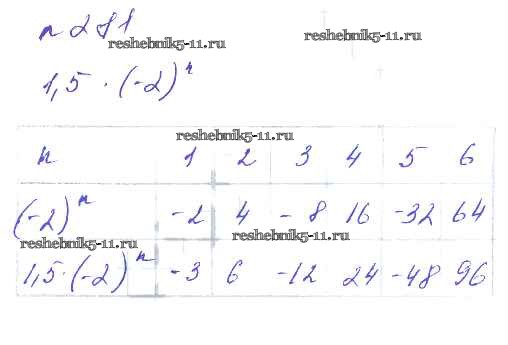 n 281
reshebnik5-11.ru
reshebnik5-11.ru
1,5 · (-2)ⁿ
reshebnik5-11.ru
n 1 2 3 4 5 6
(-2)ⁿ -2 4 -8 16 -32 64
reshebnik5-11.ru
reshebnik5-11.ru
1,5·(-2)ⁿ -3 6 -12 24 -48 96